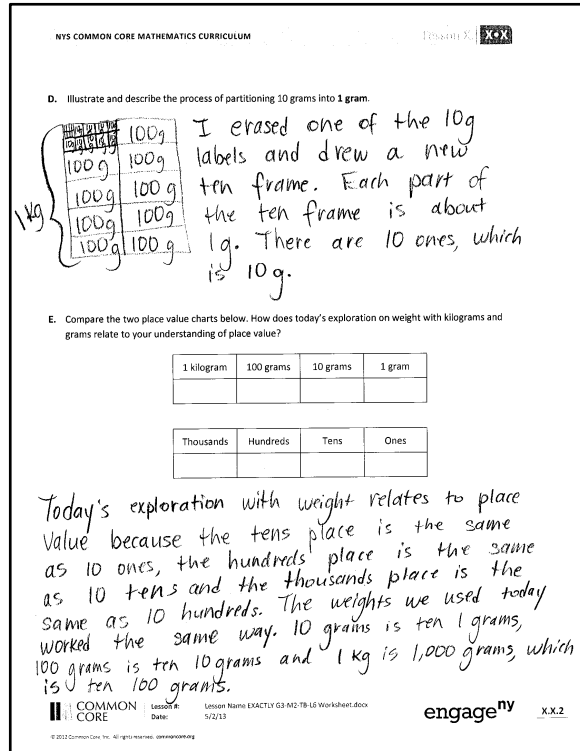 NYS COMMON CORE MATHEMATICS CURRICULUM
Lesson X
X•X
D. Illustrate and describe the process of partitioning 10 grams into 1 gram.
100g
100g 100g
100g 100g
100g 100g
100g 100g
1 kg
I erased one of the 10g
labels and drew a new
ten frame. Each part of
the ten frame is about
1g. There are 10 ones, which
is 10g.
E. Compare the two place value charts below. How does today's exploration on weight with kilograms and
grams relate to your understanding of place value?
1 kilogram 100 grams 10 grams 1 gram
Thousands Hundreds Tens Ones
Today's exploration with weight relates to place
Value because the tens place is the same
as 10 ones, the hundreds place is the same
as 10 tens and the thousands place is the
same as 10 hundreds. The weights we used today
worked the same way. 10 grams is ten 1 grams,
100 grams is ten 10 grams and 1 kg is 1,000 grams, which
is ten 100 grams.
COMMON CORE
Lesson #: Lesson Name EXACTLY G3-M2-TB-L6 Worksheet.docx
Date: 5/2/13
engageny
X.X.2
© 2012 Common Core, Inc. All rights reserved. commoncore.org